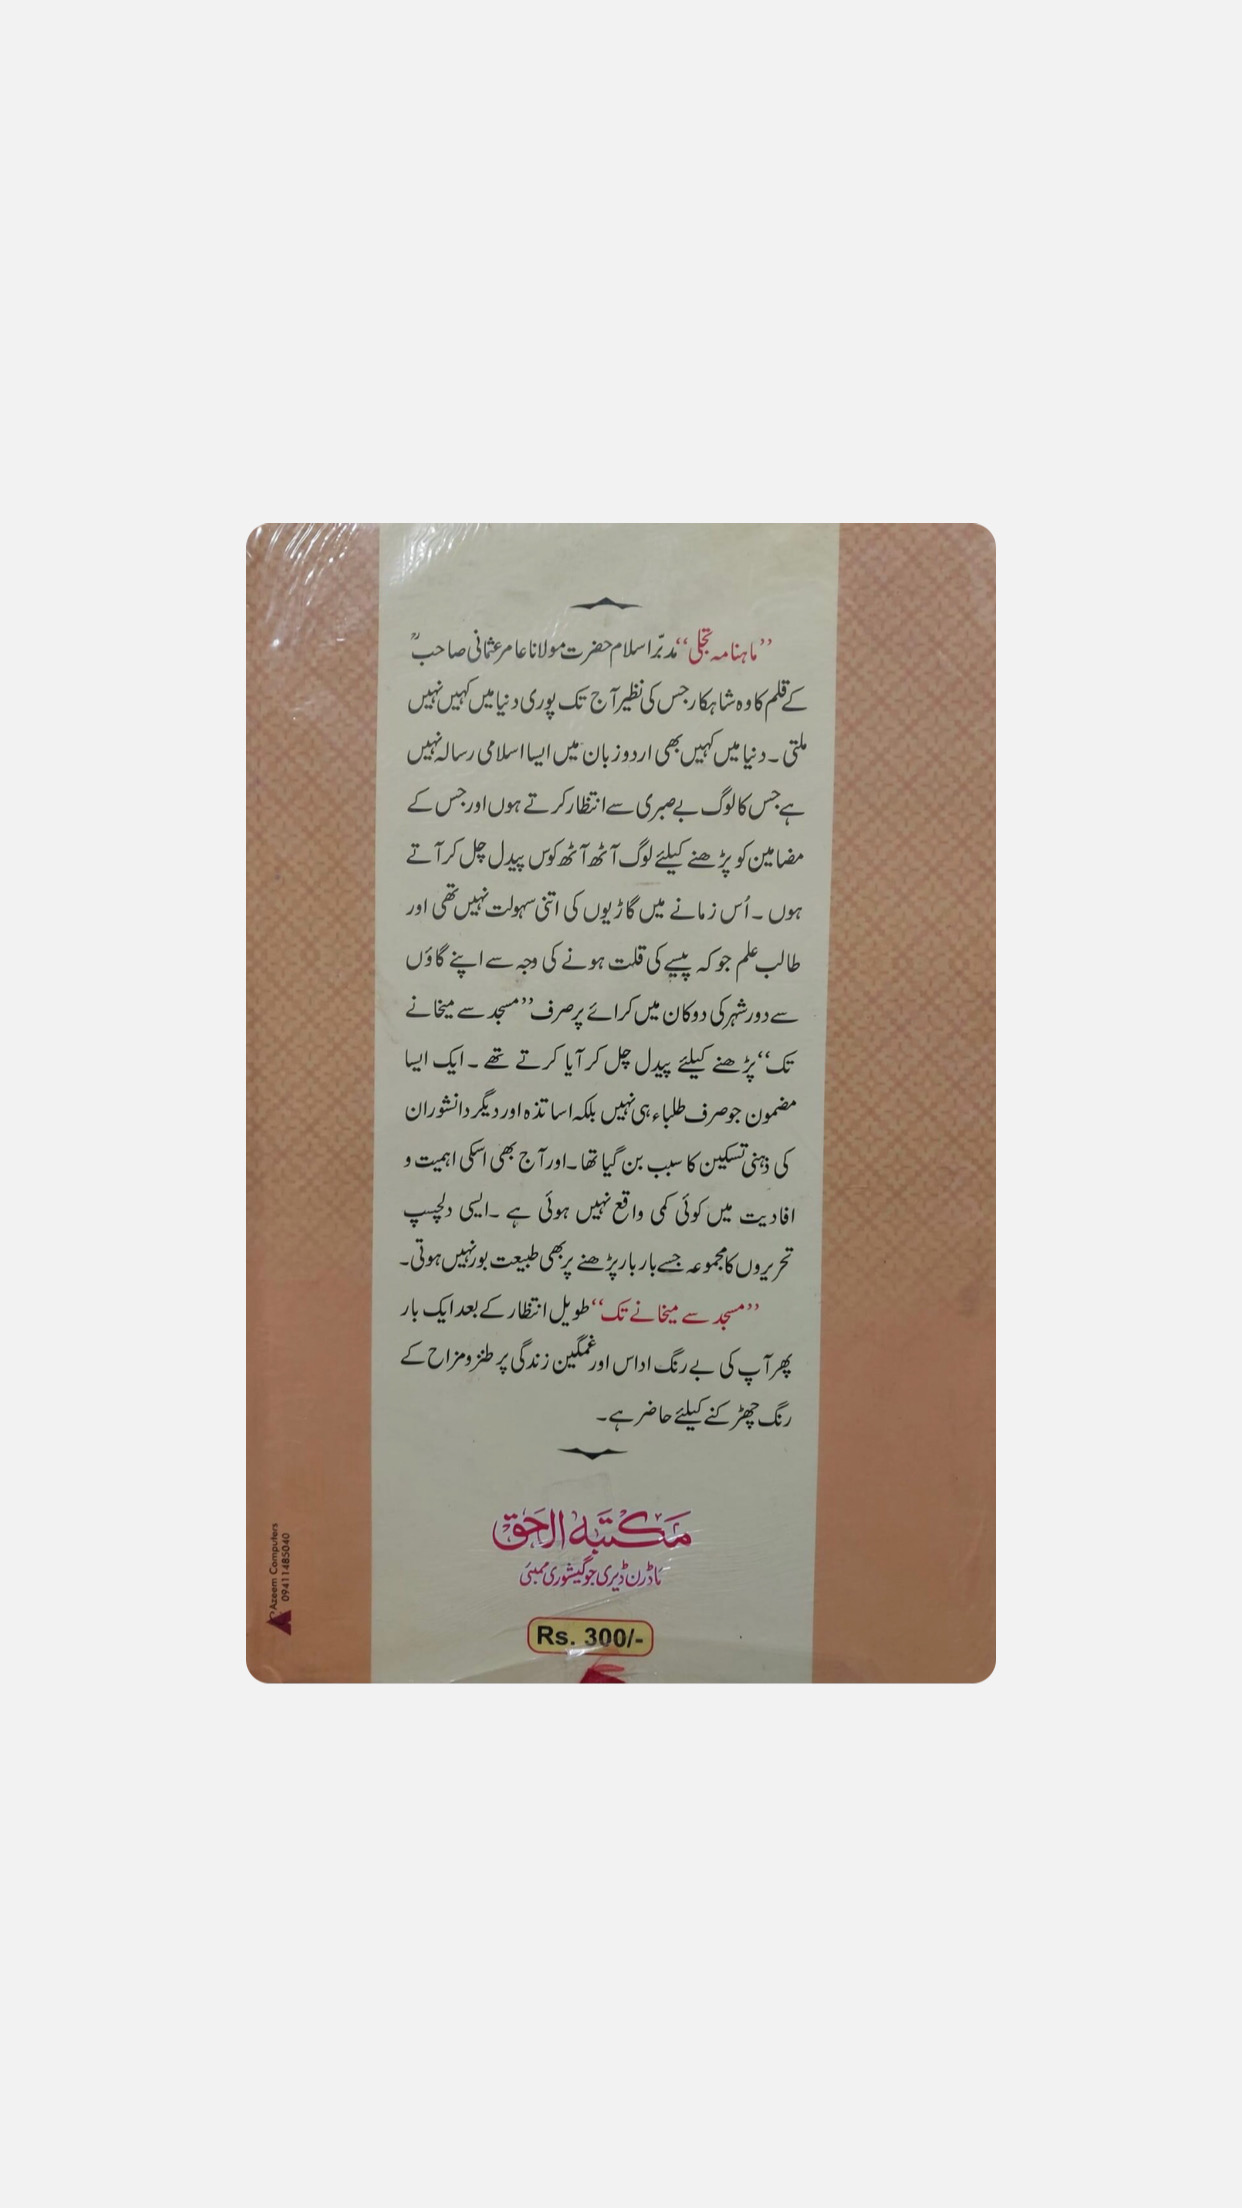 ’’ماہنامہ تجلی‘‘ مدبّر اسلام حضرت مولانا عامر عثمانی صاحبؒ
کے قلم کا وہ شاہکار جس کی نظیر آج تک پوری دنیا میں کہیں نہیں
ملتی ۔ دنیا میں کہیں بھی اردو زبان میں ایسا اسلامی رسالہ نہیں
ہے جس کا لوگ بے صبری سے انتظار کرتے ہوں اور جس کے
مضامین کو پڑھنے کیلئے لوگ آٹھ آٹھ کوس پیدل چل کر آتے
ہوں ۔ اُس زمانے میں گاڑیوں کی اتنی سہولت نہیں تھی اور
طالب علم جو کہ پیسے کی قلت ہونے کی وجہ سے اپنے گاؤں
سے دور شہر کی دوکان میں کرائے پر صرف ’’مسجد سے میخانے
تک‘‘ پڑھنے کیلئے پیدل چل کر آیا کرتے تھے ۔ ایک ایسا
مضمون جو صرف طلباء ہی نہیں بلکہ اساتذہ اور دیگر دانشوران
کی ذہنی تسکین کا سبب بن گیا تھا ۔ اور آج بھی اسکی اہمیت و
افادیت میں کوئی کمی واقع نہیں ہوئی ہے ۔ ایسی دلچسپ
تحریروں کا مجموعہ جسے بار بار پڑھنے پر بھی طبیعت بور نہیں ہوتی۔
’’مسجد سے میخانے تک‘‘ طویل انتظار کے بعد ایک بار
پھر آپ کی بے رنگ اداس اور غمگین زندگی پر طنز و مزاح کے
رنگ چھڑکنے کیلئے حاضر ہے۔
مَکتبہ الحَق
ماڈرن ڈیری جوگیشوری ممبئی
Rs. 300/-
Azeem Computers
09411485040